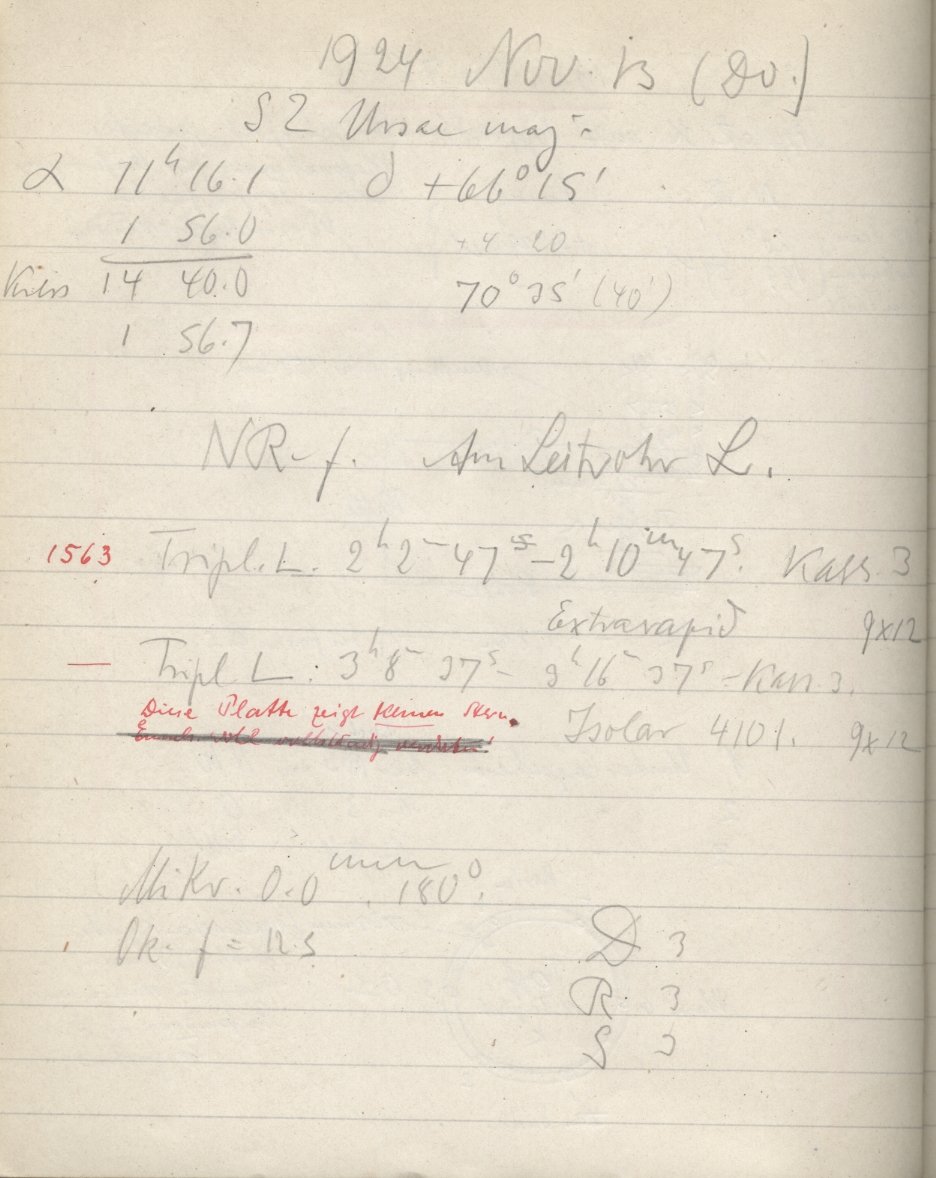 1924 Nov. 13 (Do.)
SZ Ursae maj.
α 11h 16.1 δ +66° 15'
1 56.0 +4 20
Kreis 14 40.0 70° 35' (40')
1 56.7
NR-f. Am Leitrohr L.
1563 Tripl. L. 2h 2m 47s – 2h 10m 47s. Kass. 3
Extrarapid 9x12
— Tripl L. : 3h 8m 37s – 3h 16m 37s – Kass. 3.
Diese Platte zeigt keinen Stern.
Isolar 4101. 9x12
Mikr. 0.0mm. 180°.
Ok. f = 12.5
D 3
R. 3
S 3